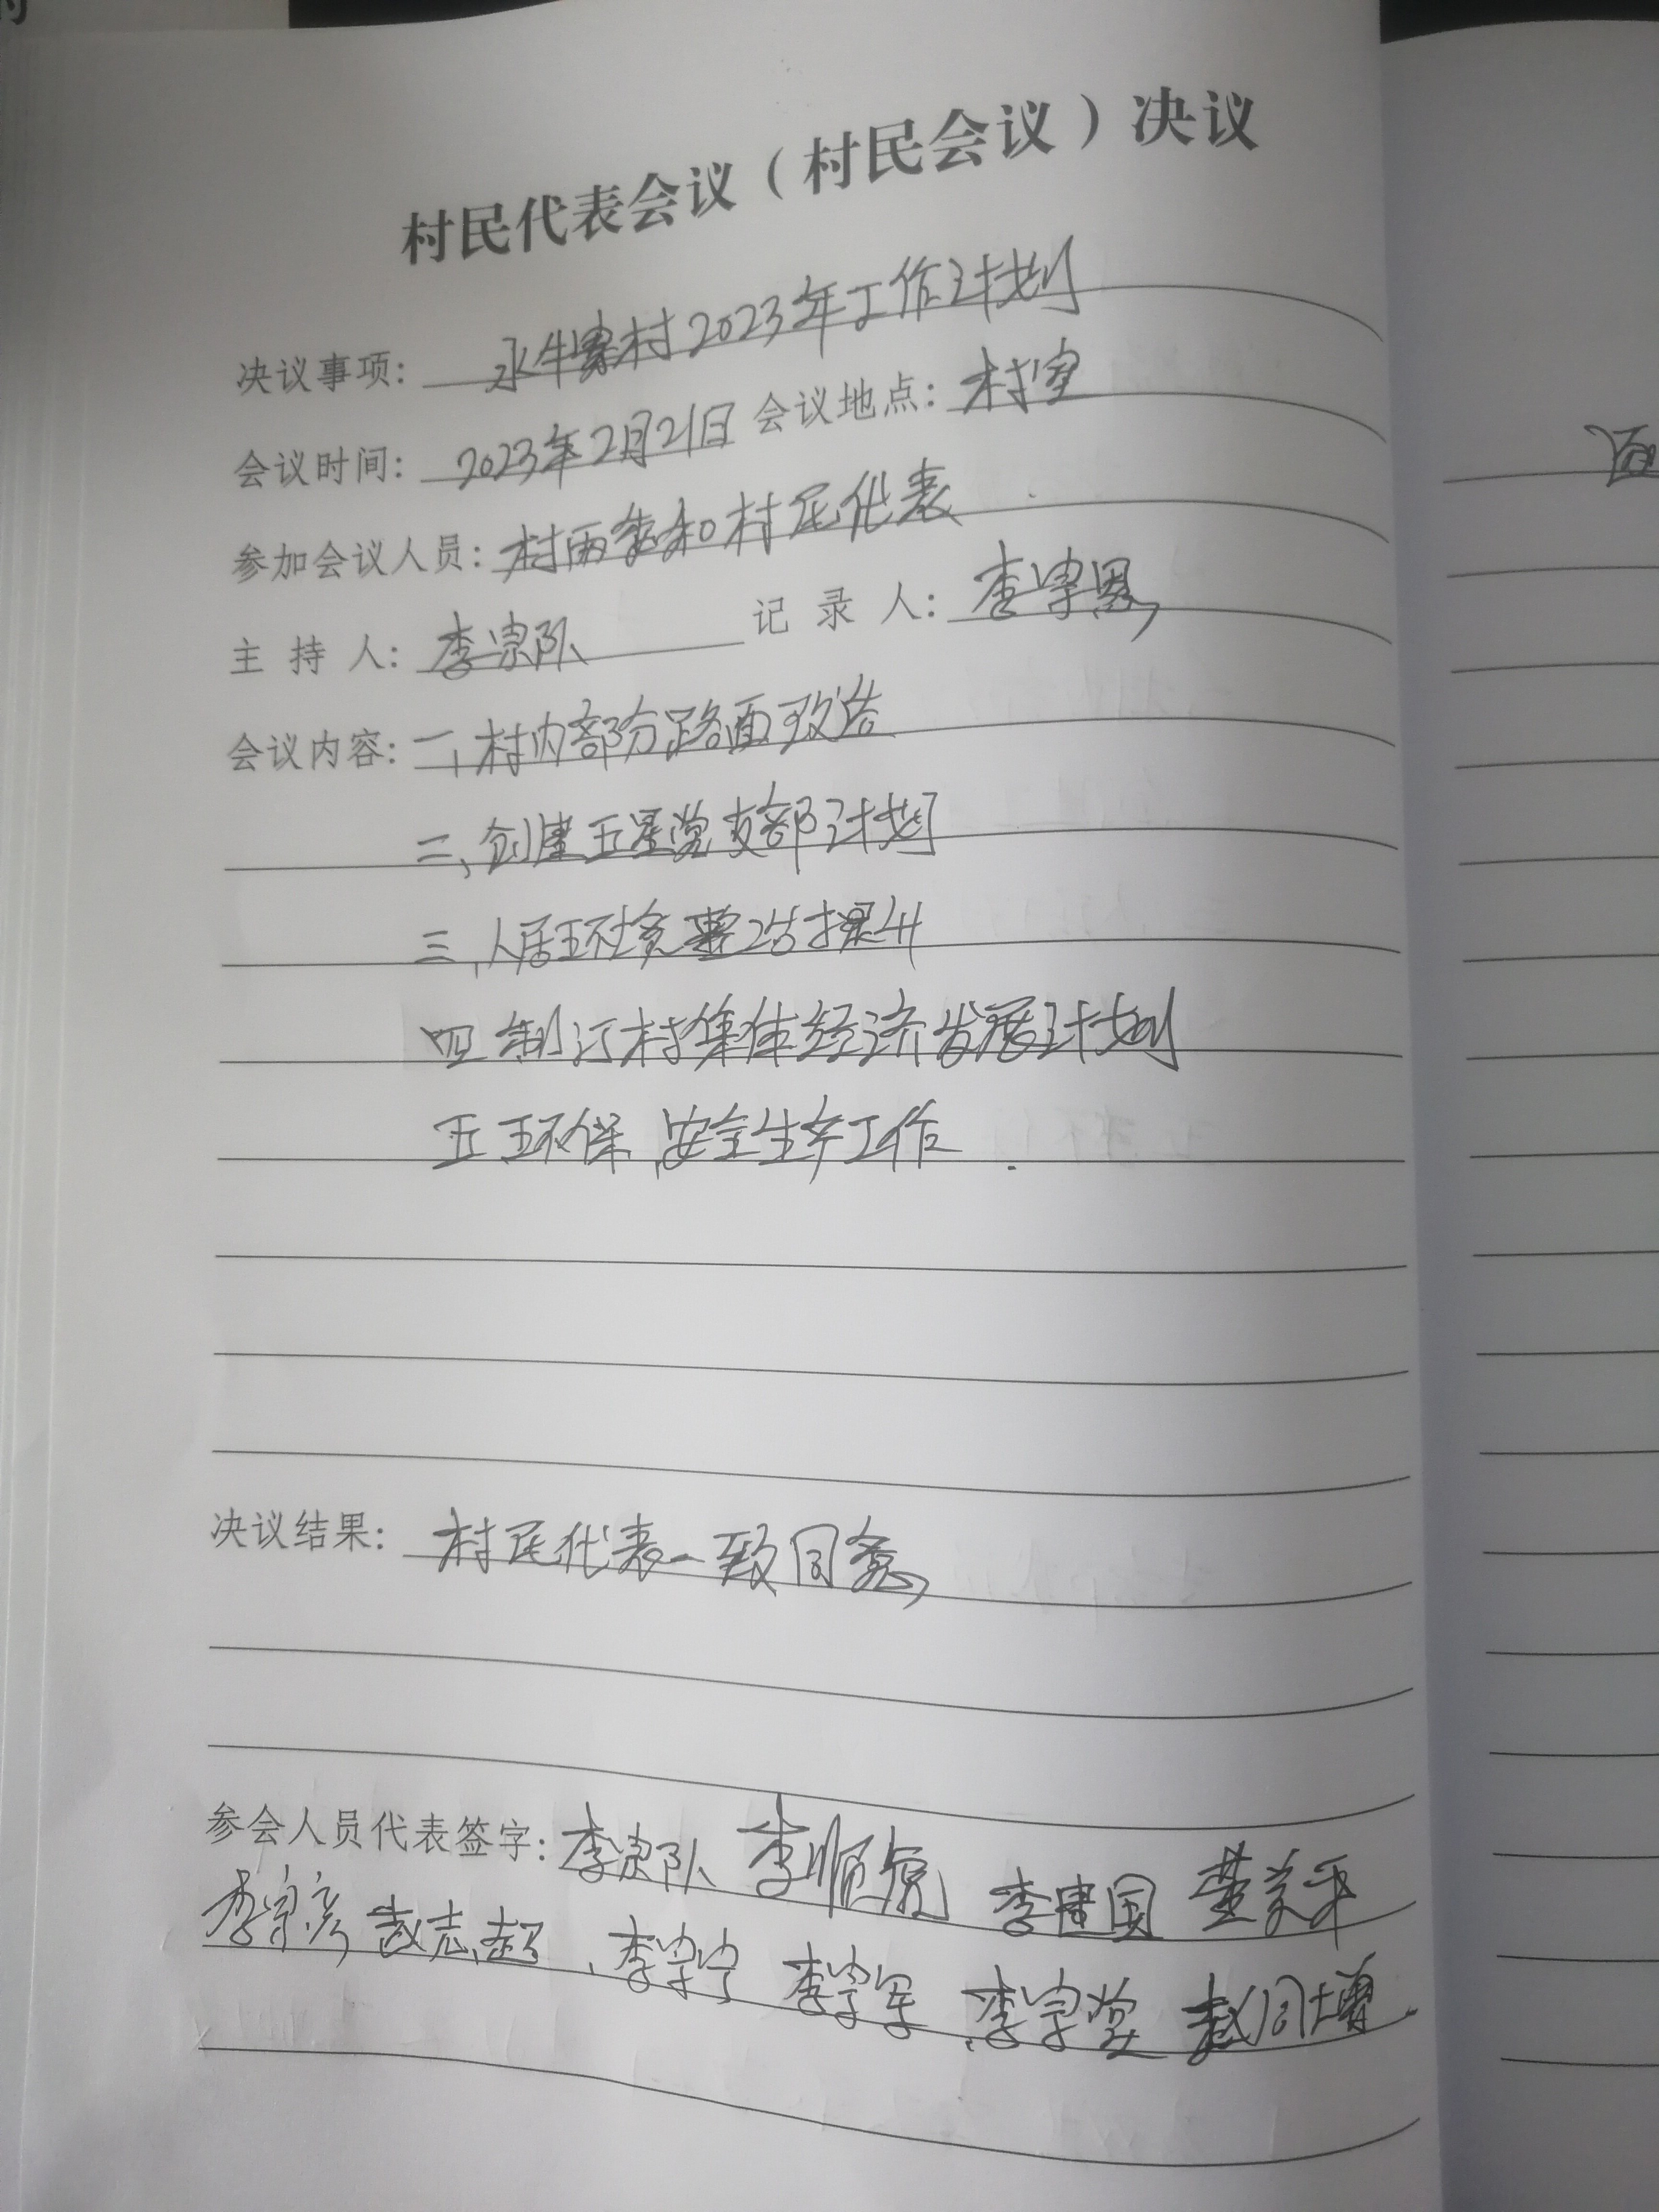 村民代表会议（村民会议）决议
决议事项： 水牛寨村2023年工作计划
会议时间： 2023年2月21日 会议地点： 村室
参加会议人员： 村两委和村民代表
主 持 人： 李宗队 记 录 人： 李宗恩
会议内容： 一、村内部分路面改造
二、创建五星党支部计划
三、人居环境整治提升
四 制订村集体经济发展计划
五 环保、安全生产工作
决议结果： 村民代表一致同意
参会人员代表签字： 李宗队 李顺 李建国 董美平
李宗彦 赵志超、李宗宁 李宗军、李宗堂 赵同增